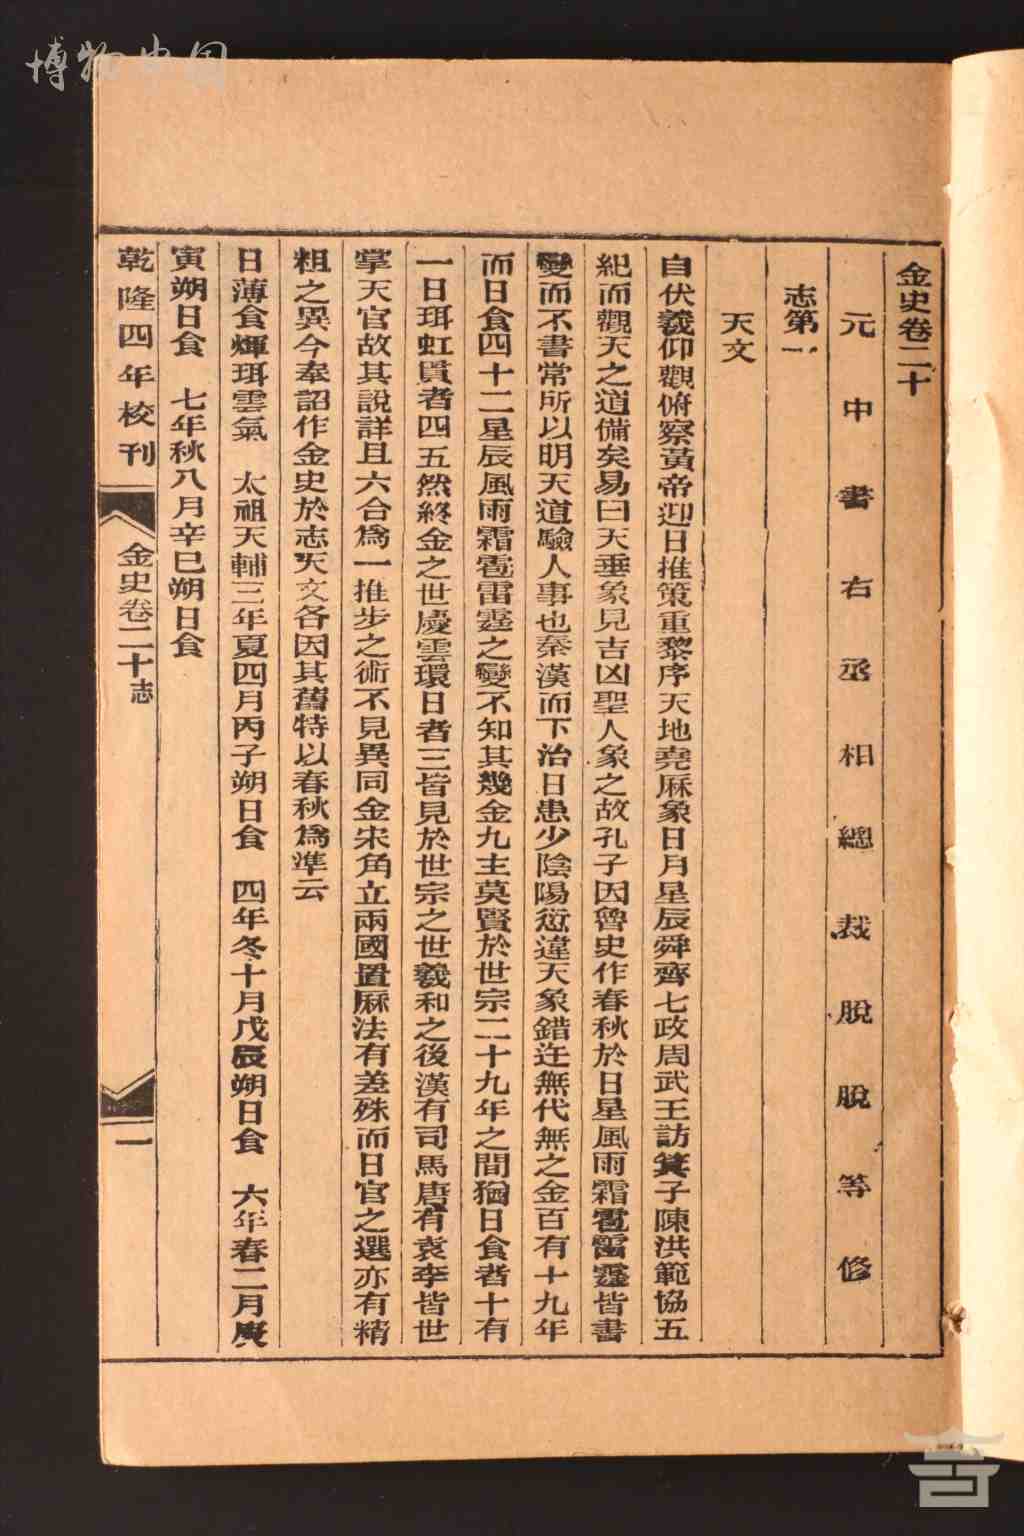 博物中国
金史卷二十
元中書右丞相總裁脫脫等修
志第一
天文
自伏羲仰觀俯察黃帝迎日推策重黎序天地堯厤象日月星辰舜齊七政周武王訪箕子陳洪範協五
紀而觀天之道備矣易曰天垂象見吉凶聖人象之故孔子因魯史作春秋於日星風雨霜雹雷霆皆書
變而不書常所以明天道驗人事也秦漢而下治日患少陰陽愆違天象錯迕無代無之金百有十九年
而日食四十二星辰風雨霜雹雷霆之變不知其幾金九主莫賢於世宗二十九年之間猶日食者十有
一日珥虹貫者四五然終金之世慶雲環日者三皆見於世宗之世羲和之後漢有司馬唐有袁李皆世
掌天官故其說詳且六合爲一推步之術不見異同金宋角立兩國置厤法有差殊而日官之選亦有精
粗之異今奉詔作金史於志天文各因其舊特以春秋爲準云
日薄食煇珥雲氣　太祖天輔三年夏四月丙子朔日食　四年冬十月戊辰朔日食　六年春二月庚
寅朔日食　七年秋八月辛巳朔日食
乾隆四年校刊
金史卷二十志
一